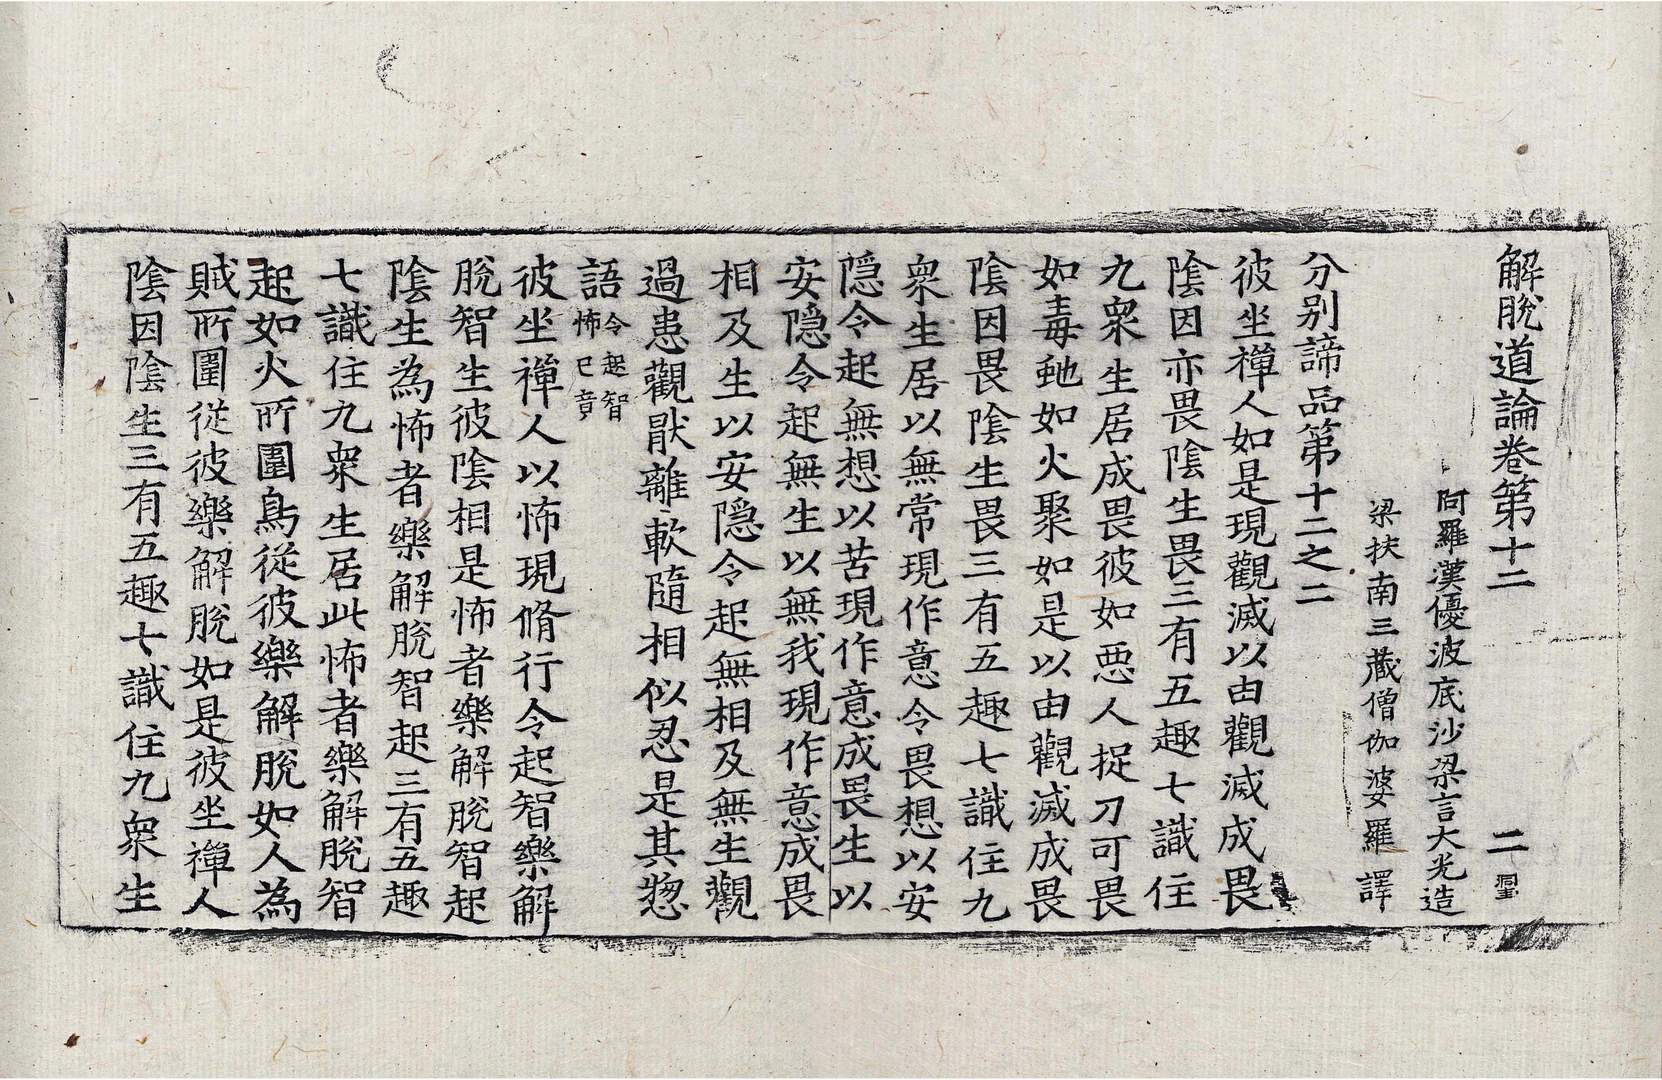 解脫道論卷第十二 二 
阿羅漢優波底沙梁言大光造
梁扶南三藏僧伽婆羅 譯
分别諦品第十二之二
彼坐禪人如是現觀滅以由觀滅成畏
陰因亦畏陰生畏三有五趣七識住
九衆生居成畏彼如惡人捉刀可畏
如毒虵如火聚如是以由觀滅成畏
陰因畏陰生畏三有五趣七識住九
衆生居以無常現作意令畏想以安
隠令起無想以苦現作意成畏生以
安隠令起無生以無我現作意成畏
相及生以安隠令起無相及無生觀
過患觀猒離軟隨相似忍是其惣
語令起智怖已竟
彼坐禪人以怖現脩行令起智樂解
脫智生彼陰相是怖者樂解脫智起
陰生為怖者樂解脫智起三有五趣
七識住九衆生居此怖者樂解脫智
起如火所圍鳥從彼樂解脫如人為
賊所圍從彼樂解脫如是彼坐禪人
陰因陰生三有五趣七識住九衆生